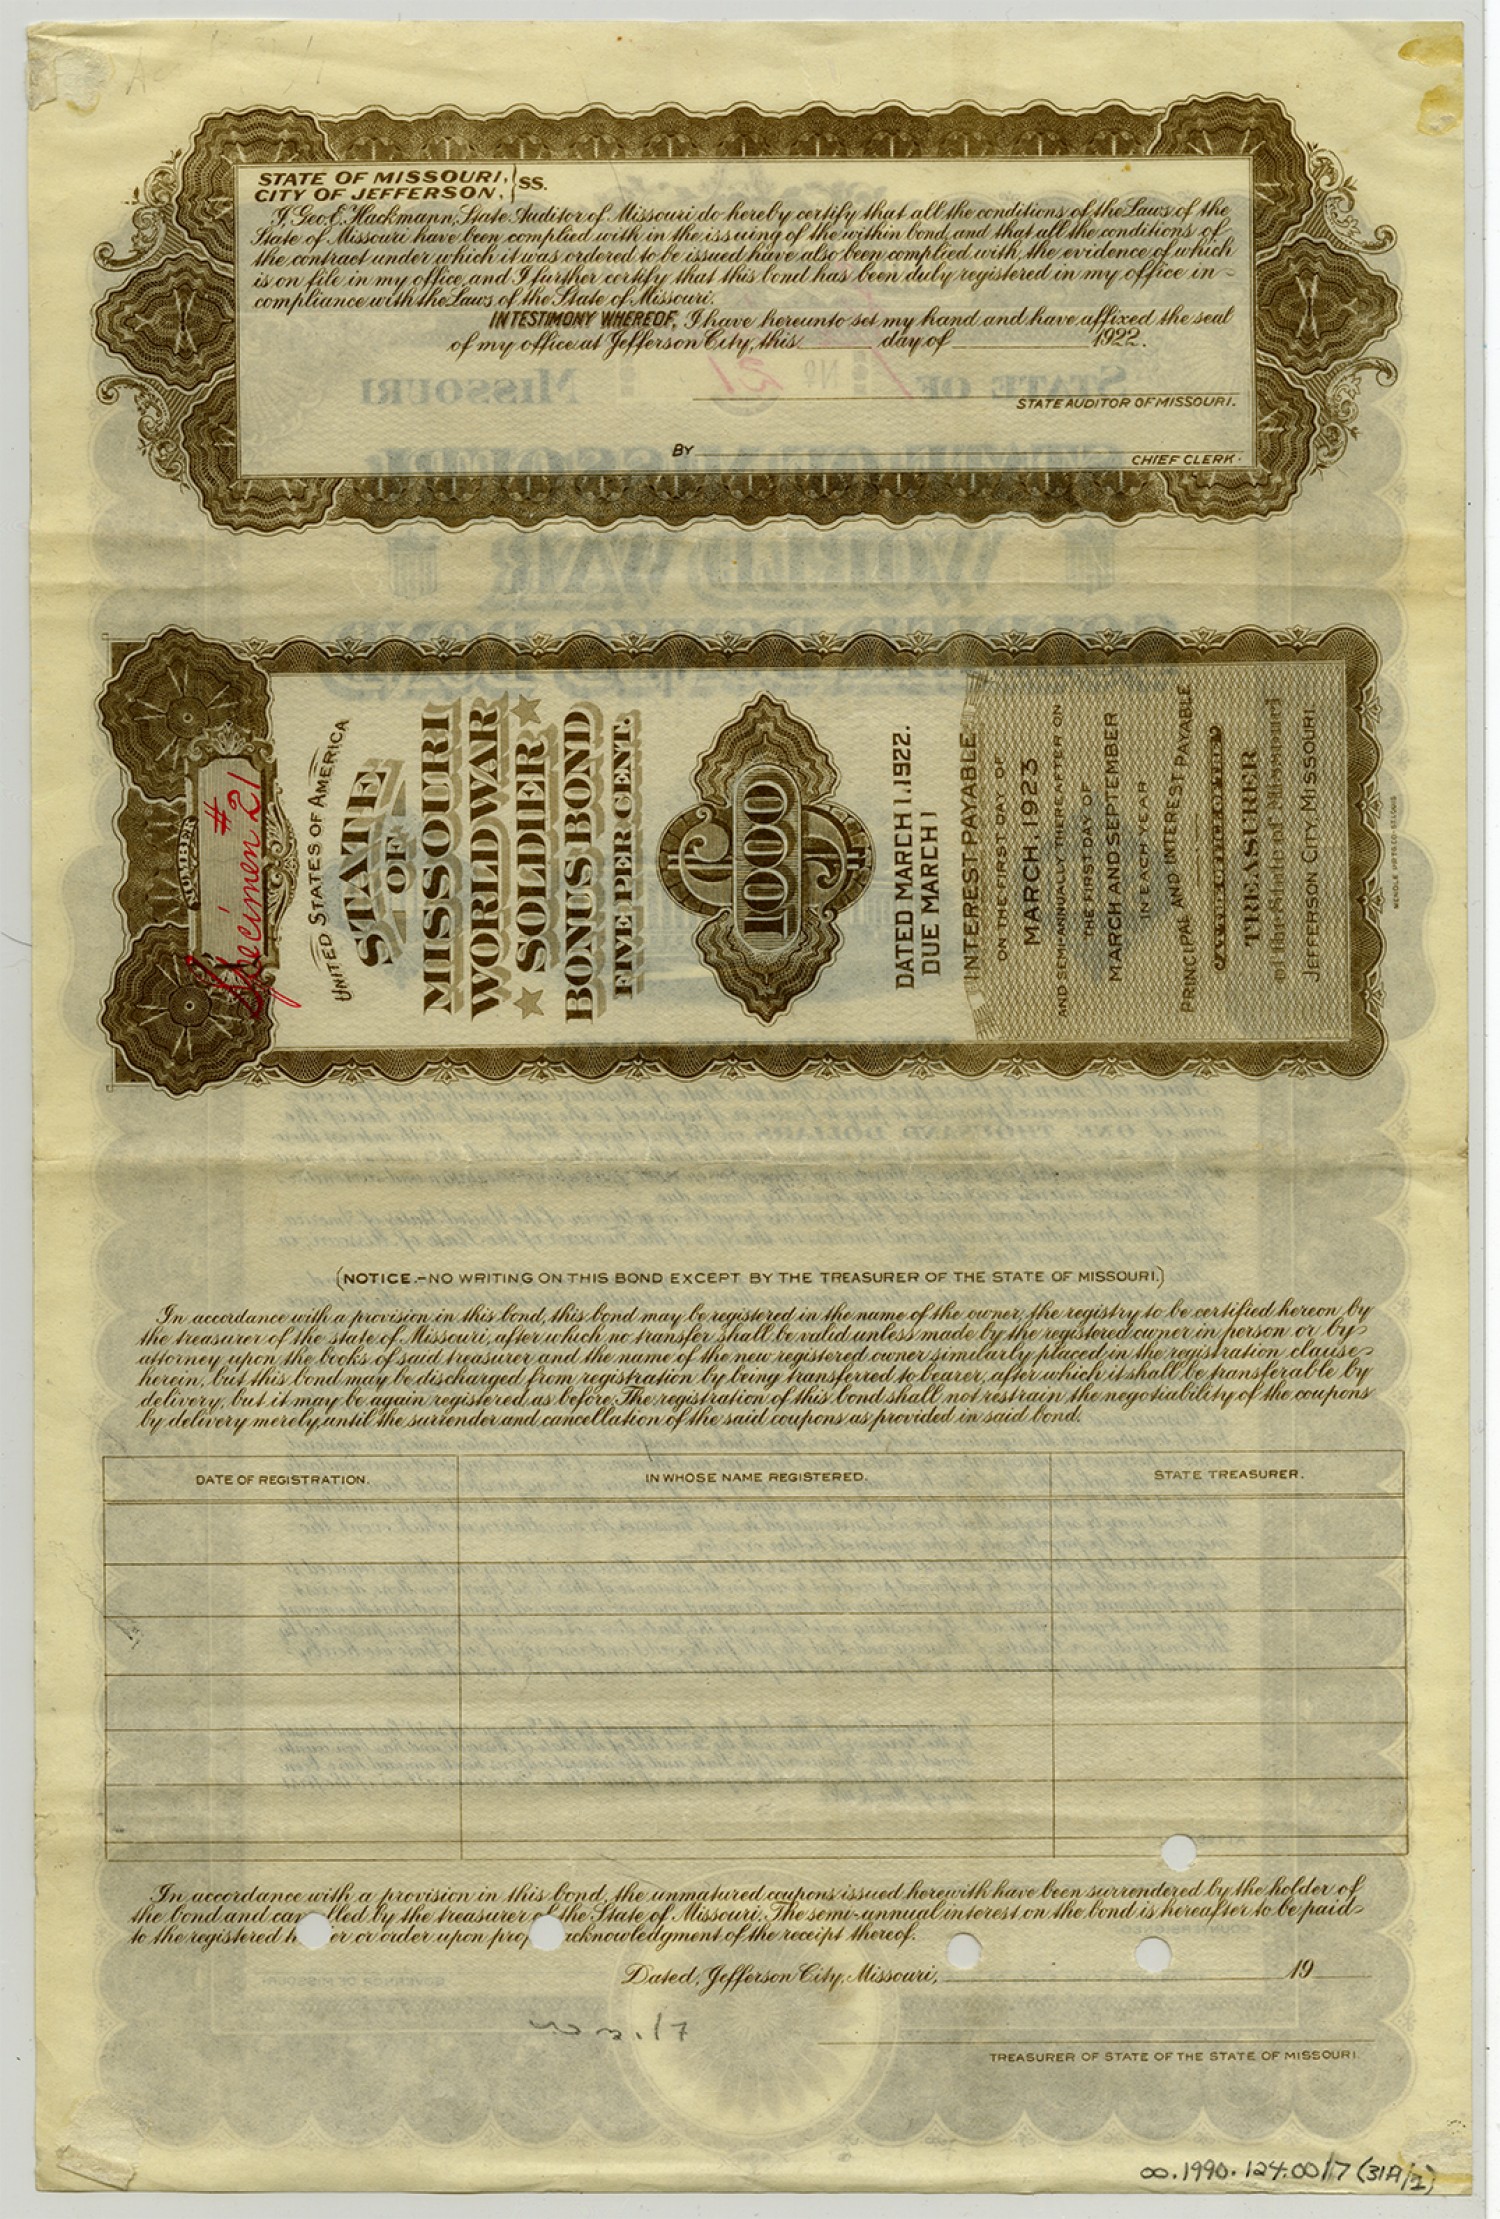 STATE OF MISSOURI, } SS.
CITY OF JEFFERSON.
I, Geo. E. Hackmann, State Auditor of Missouri do hereby certify that all the conditions of the Laws of the
State of Missouri have been complied with in the issuing of the within bond, and that all the conditions of
the contract under which it was ordered to be issued have also been complied with, the evidence of which
is on file in my office, and I further certify that this bond has been duly registered in my office in
compliance with the Laws of the State of Missouri.
IN TESTIMONY WHEREOF, I have hereunto set my hand and have affixed the seal
of my office at Jefferson City, this ____ day of ____ 1922.
STATE AUDITOR OF MISSOURI.
BY
CHIEF CLERK.
NUMBER
Specimen #21
UNITED STATES OF AMERICA
STATE
OF
MISSOURI
WORLD WAR
SOLDIER
BONUS BOND
FIVE PER CENT.
$1000
DATED MARCH 1, 1922.
DUE MARCH 1
INTEREST PAYABLE
ON THE FIRST DAY OF
MARCH, 1923
AND SEMI-ANNUALLY THEREAFTER ON
THE FIRST DAY OF
MARCH AND SEPTEMBER
IN EACH YEAR
PRINCIPAL AND INTEREST PAYABLE
TREASURER
of the State of Missouri
JEFFERSON CITY, MISSOURI.
(NOTICE.—NO WRITING ON THIS BOND EXCEPT BY THE TREASURER OF THE STATE OF MISSOURI.)
In accordance with a provision in this bond, this bond may be registered in the name of the owner, the registry to be certified hereon by
the treasurer of the state of Missouri, after which no transfer shall be valid unless made by the registered owner in person or by
attorney upon the books of said treasurer and the name of the new registered owner similarly placed in the registration clause
herein, but this bond may be discharged from registration by being transferred to bearer, after which it shall be transferable by
delivery, but it may be again registered as before. The registration of this bond shall not restrain the negotiability of the coupons
by delivery merely, until the surrender and cancellation of the said coupons as provided in said bond.
DATE OF REGISTRATION. IN WHOSE NAME REGISTERED. STATE TREASURER.
In accordance with a provision in this bond, the unmatured coupons issued herewith have been surrendered by the holder of
the bond and can lled by the treasurer of the State of Missouri. The semi-annual interest on the bond is hereafter to be paid
to the registered h er or order upon prop acknowledgment of the receipt thereof.
Dated, Jefferson City, Missouri, ____ 19__
TREASURER OF STATE OF THE STATE OF MISSOURI.
00.1990.124.0017 (31A/2)